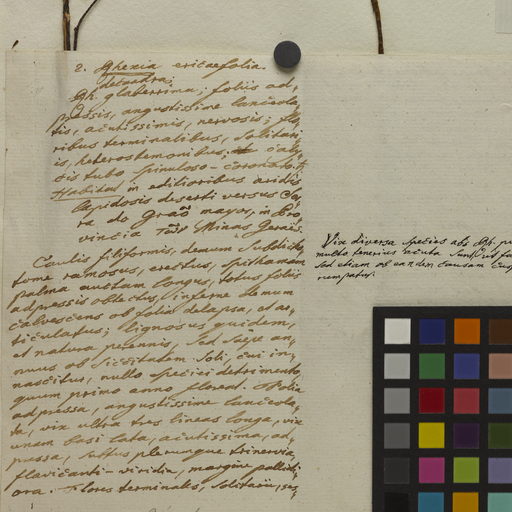 2. Rhexia ericaefolia.
decandra;
Rh. glaberrima; foliis ad,
pressis, angustissime lanceola,
tis, acutissimis, nervosis; flo,
ribus terminalibus, solitari,
is, heterostemonibus; caly,
cis tubo spinuloso-coronato.
Habitat in editioribus aridis
lapidosis deserti versus Ser,
ra do Grão mayor, in Pro,
vincia Minas Geraës.
Caulis filiformis, demum subdicho,
tome ramosus, erectus, spithamam
palma auctam longus, totus foliis
adpressis obtectus, inferne demum
calvescens ob folia delapsa, et ar,
ticulatus; lignosus quidem,
et natura perennis, sed saepe an,
nuus ob siccitatem soli, cui in,
nascitur, nullo speciei detrimento,
quum primo anno floreat. Folia
adpressa, angustissime lanceola,
ta, vix ultra tres lineas longa, vix
unam basi lata, acutissima, ad,
pressa, subtus plerumque trinervia,
flavicanti-viridia, margine pallidi,
ora. Flores terminales, solitarii, ses,
Vix diversa species ab Rh.
multo tenerius acuta sunt, ut
sed etiam ob eandem causam
rumpatur.